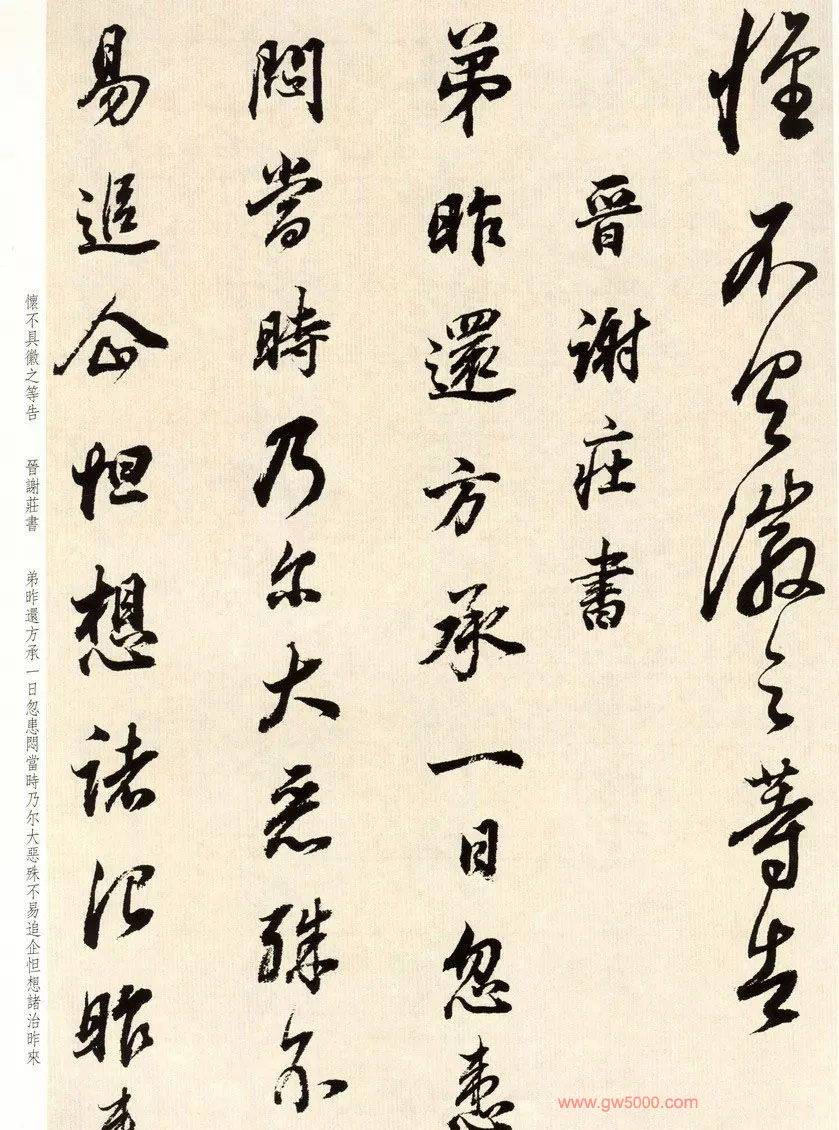 懷不具徽之等告
晉謝莊書
弟昨還方承一日忽患
悶當時乃尔大惡殊不
易追企怛想諸治昨來
懷不具徽之等告 晉謝莊書 弟昨還方承一日忽患悶當時乃尔大惡殊不易追企怛想諸治昨來
www.gw5000.com